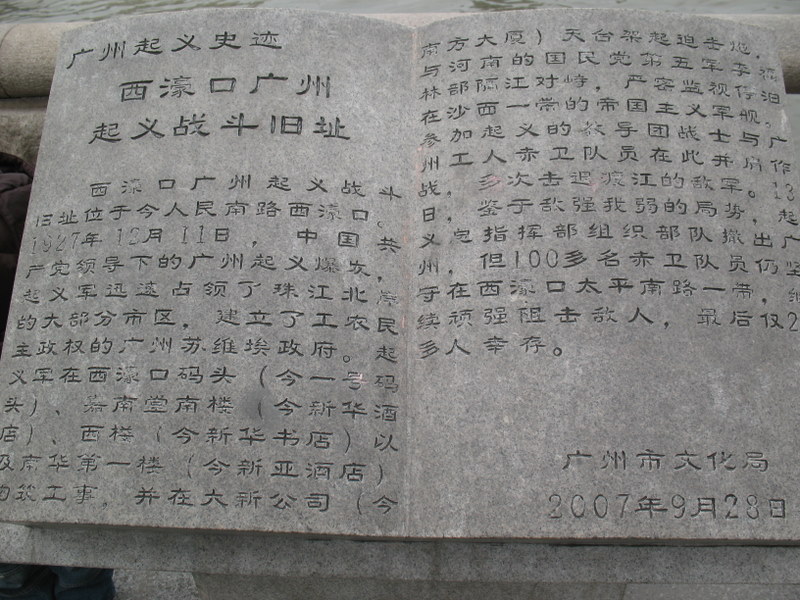 广州起义史迹
西濠口广州
起义战斗旧址
西濠口广州起义战斗
旧址位于今人民南路西濠口。
1927年12月11日，中国共
产党领导下的广州起义爆发，
起义军迅速占领了珠江北岸
的大部分市区，建立了工农民
主政权的广州苏维埃政府。起
义军在西濠口码头（今一号码
头）、嘉南堂南楼（今新华酒
店）、西楼（今新华书店）以
及南华第一楼（今新亚酒店）
构筑工事，并在大新公司（今
南方大厦）天台架起迫击炮，
与河南的国民党第五军李福
林部隔江对峙，严密监视停泊
在沙面一带的帝国主义军舰。
参加起义的教导团战士与广
州工人赤卫队员在此并肩作
战，多次击退渡江的敌军。13
日，鉴于敌强我弱的局势，起
义总指挥部组织部队撤出广
州，但100多名赤卫队员仍坚
守在西濠口太平南路一带，继
续顽强阻击敌人，最后仅2
多人幸存。
广州市文化局
2007年9月28日